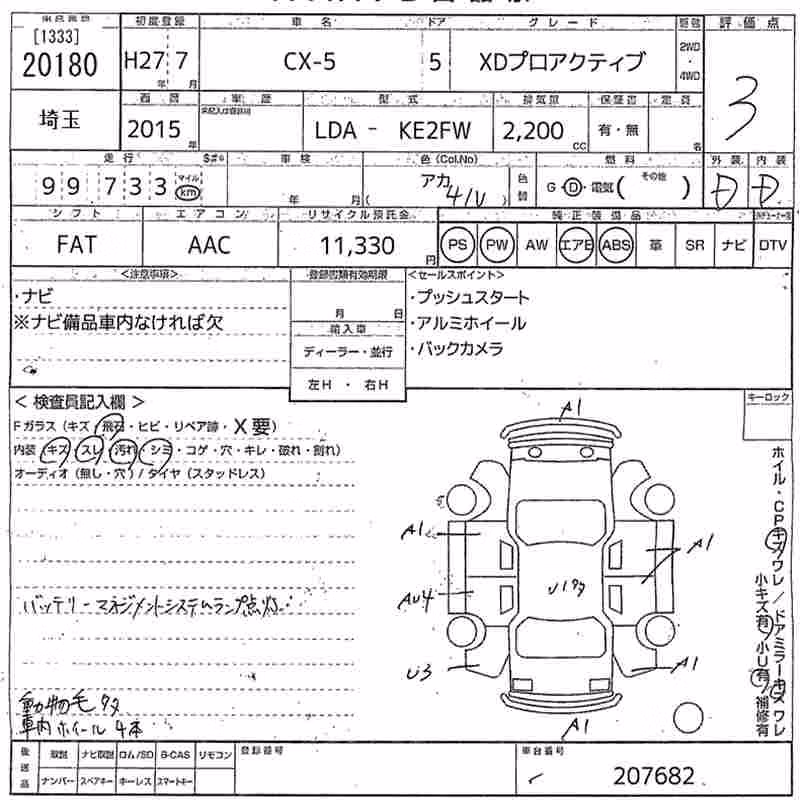 [1333]
20180
初度登録
H27 7
年 月
車名
CX-5
ドア
5
グレード
XDプロアクティブ
2WD
・
4WD
評価点
3
埼玉
西暦
2015
年
車歴
型式
LDA - KE2FW
排気量
2,200
CC
保証書
有・無
定員
名
走行
99733
マイル
km
車検
年 月
色(Col.No)
アカ
41V
色替
燃料
G・D・電気( その他 )
外装
D
内装
D
シフト
FAT
エアコン
AAC
リサイクル預託金
11,330
円
純正装備品
PS PW AW エアB ABS 革 SR ナビ DTV
<注意事項>
・ナビ
※ナビ備品車内なければ欠
登録書類有効期限
月 日
輸入車
ディーラー・並行
左H ・ 右H
<セールスポイント>
・プッシュスタート
・アルミホイール
・バックカメラ
<検査員記入欄>
Fガラス(キズ・飛石・ヒビ・リペア跡・X要)
内装(キズ・スレ・汚れ・シミ・コゲ・穴・キレ・破れ・剝れ)
オーディオ(無し・穴)/タイヤ(スタッドレス)
バッテリーマネジメントシステムランプ点灯
動物毛タタ
車内ホイール4本
A1
A1
A1
AU4
U3
A1
A1
キーロック
ホイル・CPキズワレ/ドアミラーキズワレ
小キズ有/小U有/補修有
後送品
取説 ナビ取説 ロム/SD B-CAS リモコン
ナンバー スペアキー キーレス スマートキー
登録番号
車台番号
207682